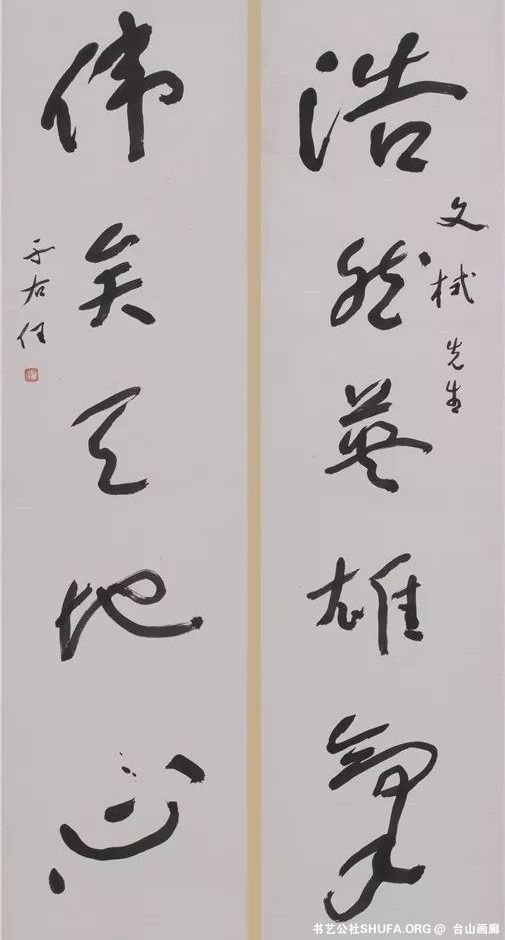 浩然英雄气
文栻先生
伟矣天地心
于右任
书艺公社SHUFA.ORG @ 台山画廊